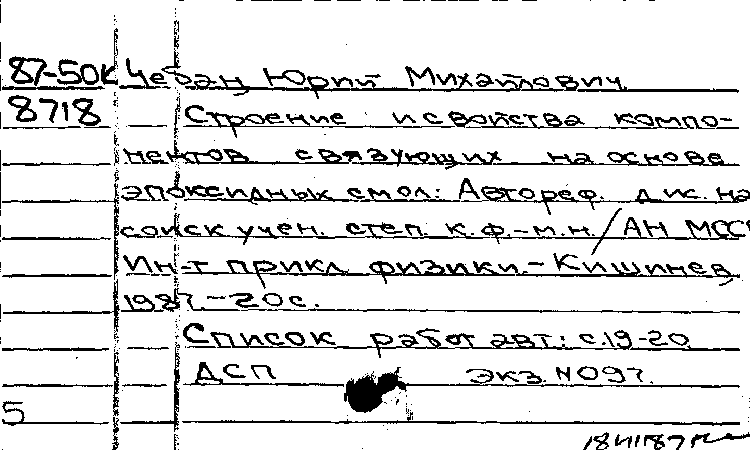 87-50К Чебан, Юрий Михайлович.
8718 Строение и свойства компо-
нентов связующих на основе
эпоксидных смол: Автореф. дис. на
соиск учен. степ. к.ф.-м.н./АН МССР
Ин-т прикл физики.-Кишинев,
1987.-20с.
Список работ авт.: с.19-20
ДСП Экз. №097.
5